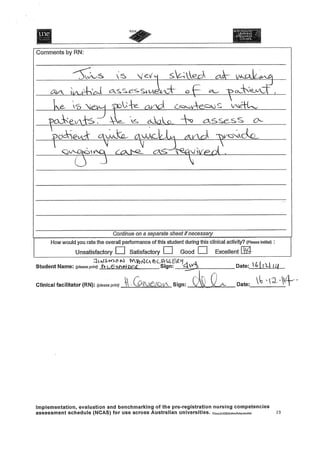 une
Comments by RN:
Jins is very skilled at making
an initial assessment of a patient.
he is very polite and courteous with
patients. He is able to assess a
patient quite quickly and provide
ongoing care as required.
Continue on a separate sheet if necessary
How would you rate the overall performance of this student during this clinical activity? (Please initial) :
Unsatisfactory Satisfactory Good Excellent
Student Name: (please print) Sign: Date: 16/12/14
Clinical facilitator (RN): (please print) Sign: Date: 16.12.14.
Implementation, evaluation and benchmarking of the pre-registration nursing competencies
assessment schedule (NCAS) for use across Australian universities.
15